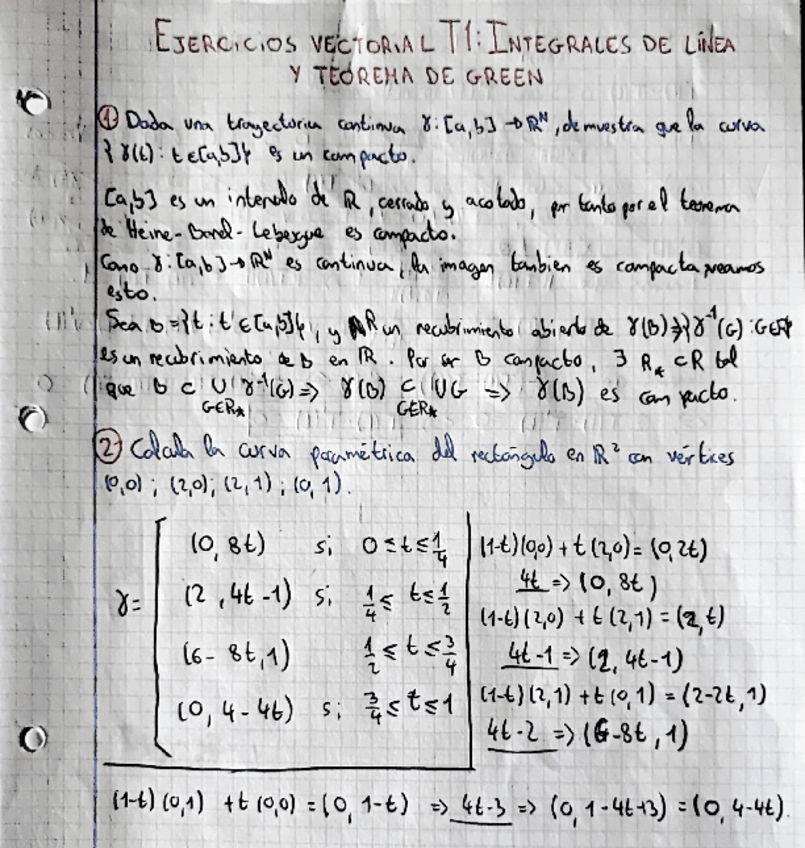 EJERCICIOS VECTORIAL T1: INTEGRALES DE LÍNEA
Y TEOREMA DE GREEN
① Dada una trayectoria continua γ: [a,b] → ℝᴺ, demuestra que la curva
{γ(t): t∈[a,b]} es un compacto.
[a,b] es un intervalo de ℝ, cerrado y acotado, por tanto por el teorema
de Heine-Borel-Lebesgue es compacto.
Como γ: [a,b] → ℝᴺ es continua, la imagen tambien es compacta, veamos
esto.
Sea B = {t: t∈[a,b]}, y R un recubrimiento abierto de γ(B) ⇒ {γ⁻¹(G): G∈R}
es un recubrimiento de B en ℝ. Por ser B compacto, ∃ R* ⊂ R tal
que B ⊂ ∪ γ⁻¹(G) ⇒ γ(B) ⊂ ∪ G ⇒ γ(B) es compacto.
G∈R* G∈R*
② Calcula la curva paramétrica del rectángulo en ℝ² con vértices
(0,0); (2,0); (2,1); (0,1).
(0, 8t) si 0 ≤ t ≤ 1/4 (1-t)(0,0) + t(2,0) = (0,2t)
4t ⇒ (0, 8t)
γ = (2, 4t-1) si 1/4 ≤ t ≤ 1/2
(1-t)(2,0) + t(2,1) = (2,t)
(6-8t, 1) 1/2 ≤ t ≤ 3/4 4t-1 ⇒ (2, 4t-1)
(0, 4-4t) si 3/4 ≤ t ≤ 1 (1-t)(2,1) + t(0,1) = (2-2t, 1)
4t-2 ⇒ (6-8t, 1)
(1-t)(0,1) + t(0,0) = (0, 1-t) ⇒ 4t-3 ⇒ (0, 1-4t+3) = (0, 4-4t).